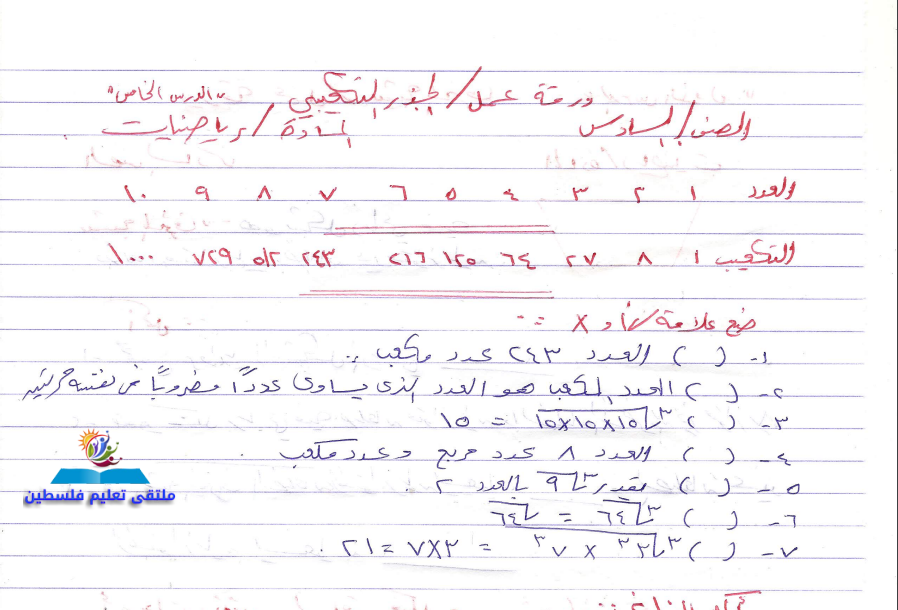 ورقة عمل / الجذر التكعيبي "الدرس الخامس"
الصف / السادس المادة / رياضيات
العدد ١ ٢ ٣ ٤ ٥ ٦ ٧ ٨ ٩ ١٠
التكعيب ١ ٨ ٢٧ ٦٤ ١٢٥ ٢١٦ ٢٤٣ ٥١٢ ٧٢٩ ١٠٠٠
ضع علامة √ أو X :-
١- ( ) العدد ٢٤٣ عدد مكعب .
٢- ( ) العدد المكعب هو العدد الذي يساوي عدداً مضروباً في نفسه مرتين
٣- ( ) ∛١٥×١٥×١٥ = ١٥
٤- ( ) العدد ٨ عدد مربع وعدد مكعب .
٥- ( ) يقدر ∛٩ بالعدد ٢ .
٦- ( ) ∛٦٤ = √٦٤
٧- ( ) ∛٣³ × ٧³ = ٣×٧ = ٢١ .
ملتقى تعليم فلسطين